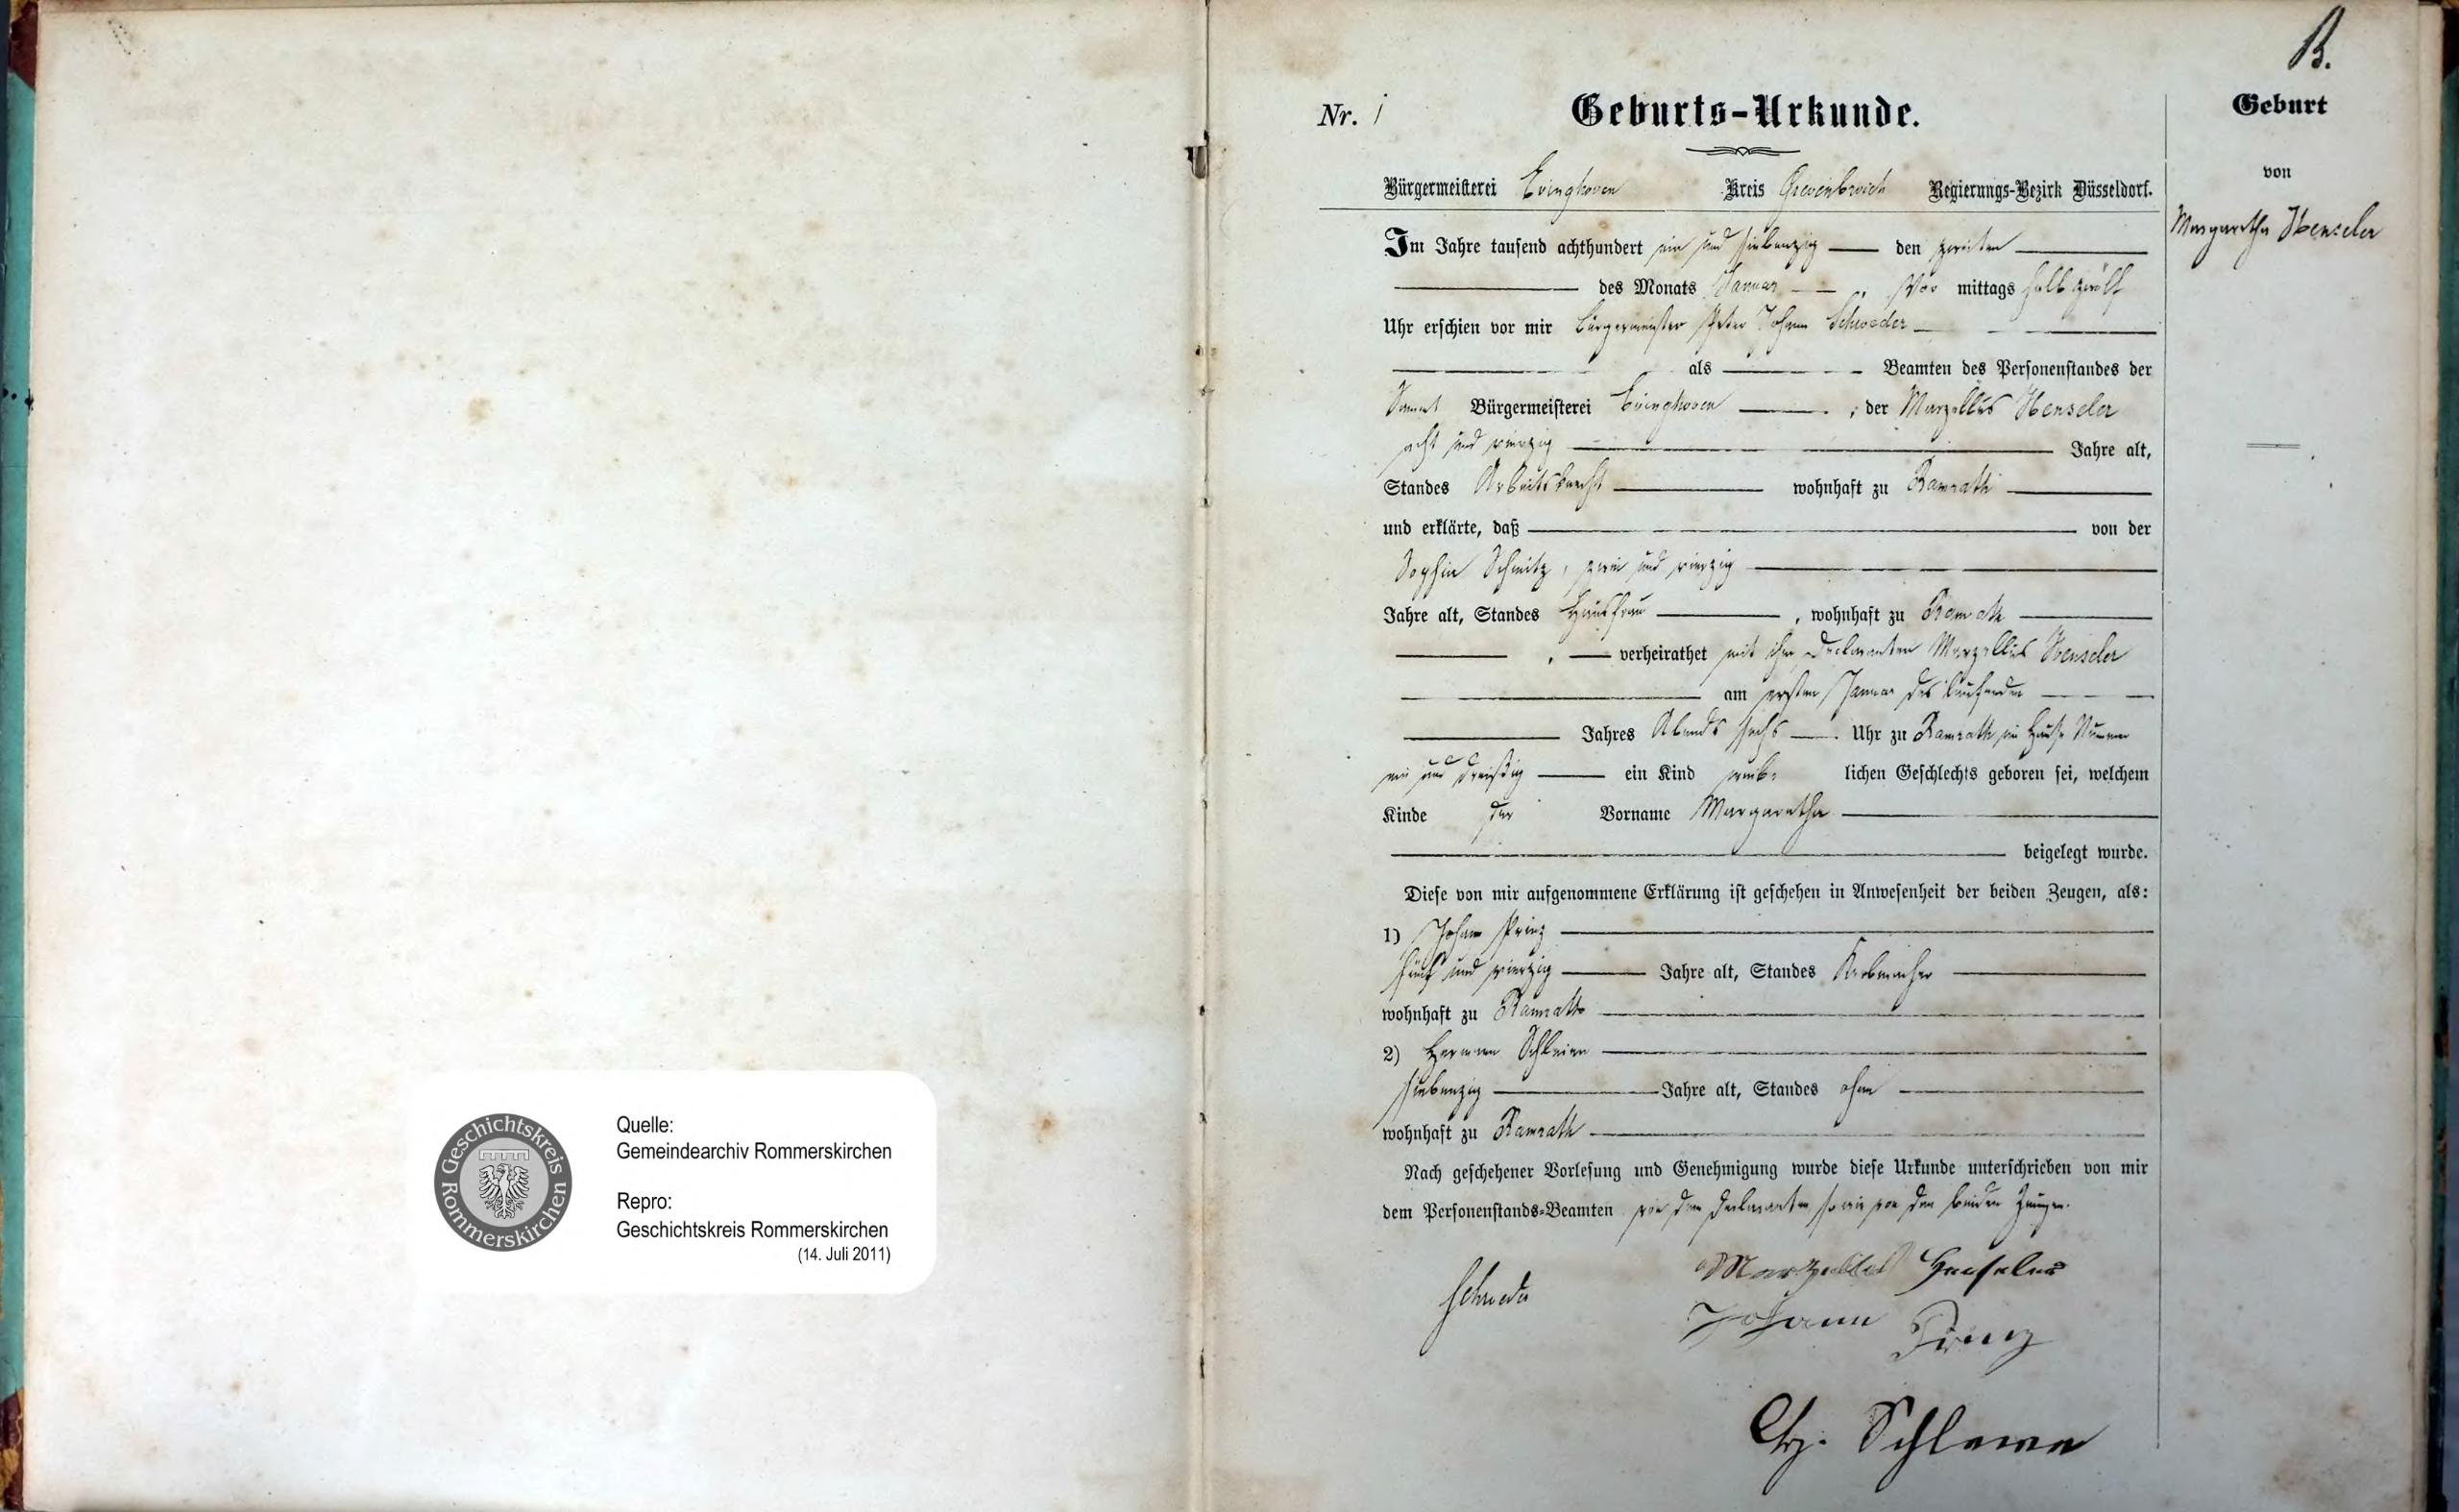 Quelle:
Gemeindearchiv Rommerskirchen
Repro:
Geschichtskreis Rommerskirchen
(14. Juli 2011)
Geschichtskreis Rommerskirchen
B.
Nr. 1
Geburts-Urkunde.
Bürgermeisterei Evinghoven Kreis Grevenbroich Regierungs-Bezirk Düsseldorf.
Im Jahre tausend achthundert ein und siebenzig den zweiten
des Monats Januar, Vor mittags halb zwölf
Uhr erschien vor mir Bürgermeister Peter Johann Schroeder
als Beamten des Personenstandes der
Sammt Bürgermeisterei Evinghoven, der Marzellus Henseler
acht und vierzig Jahre alt,
Standes Arbeitsknecht wohnhaft zu Ramrath
und erklärte, daß von der
Sophia Schmitz, zwei und vierzig
Jahre alt, Standes Hausfrau, wohnhaft zu Ramrath
, verheirathet mit ihm Declaranten Marzellus Henseler
am ersten Januar des laufenden
Jahres Abends sechs Uhr zu Ramrath im Hause Nummer
ein und dreißig ein Kind weib- lichen Geschlechts geboren sei, welchem
Kinde der Vorname Margaretha
beigelegt wurde.
Diese von mir aufgenommene Erklärung ist geschehen in Anwesenheit der beiden Zeugen, als:
1) Johann Prinz
fünf und vierzig Jahre alt, Standes Korbmacher
wohnhaft zu Ramrath
2) Hermann
siebenzig Jahre alt, Standes ohne
wohnhaft zu Ramrath
Nach geschehener Vorlesung und Genehmigung wurde diese Urkunde unterschrieben von mir
dem Personenstands-Beamten, wie dem Declaranten, sowie von den beiden Zeugen.
Marzellus Henseler
Schroeder
Johann Prinz
Geburt
von
Margaretha Henseler